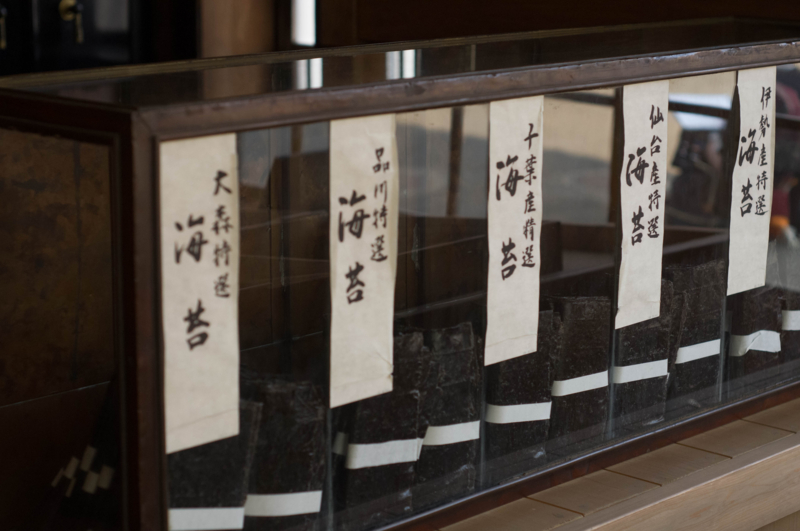 大森特選
海苔
品川特選
海苔
千葉産精選
海苔
仙台産特選
海苔
伊勢産特選
海苔